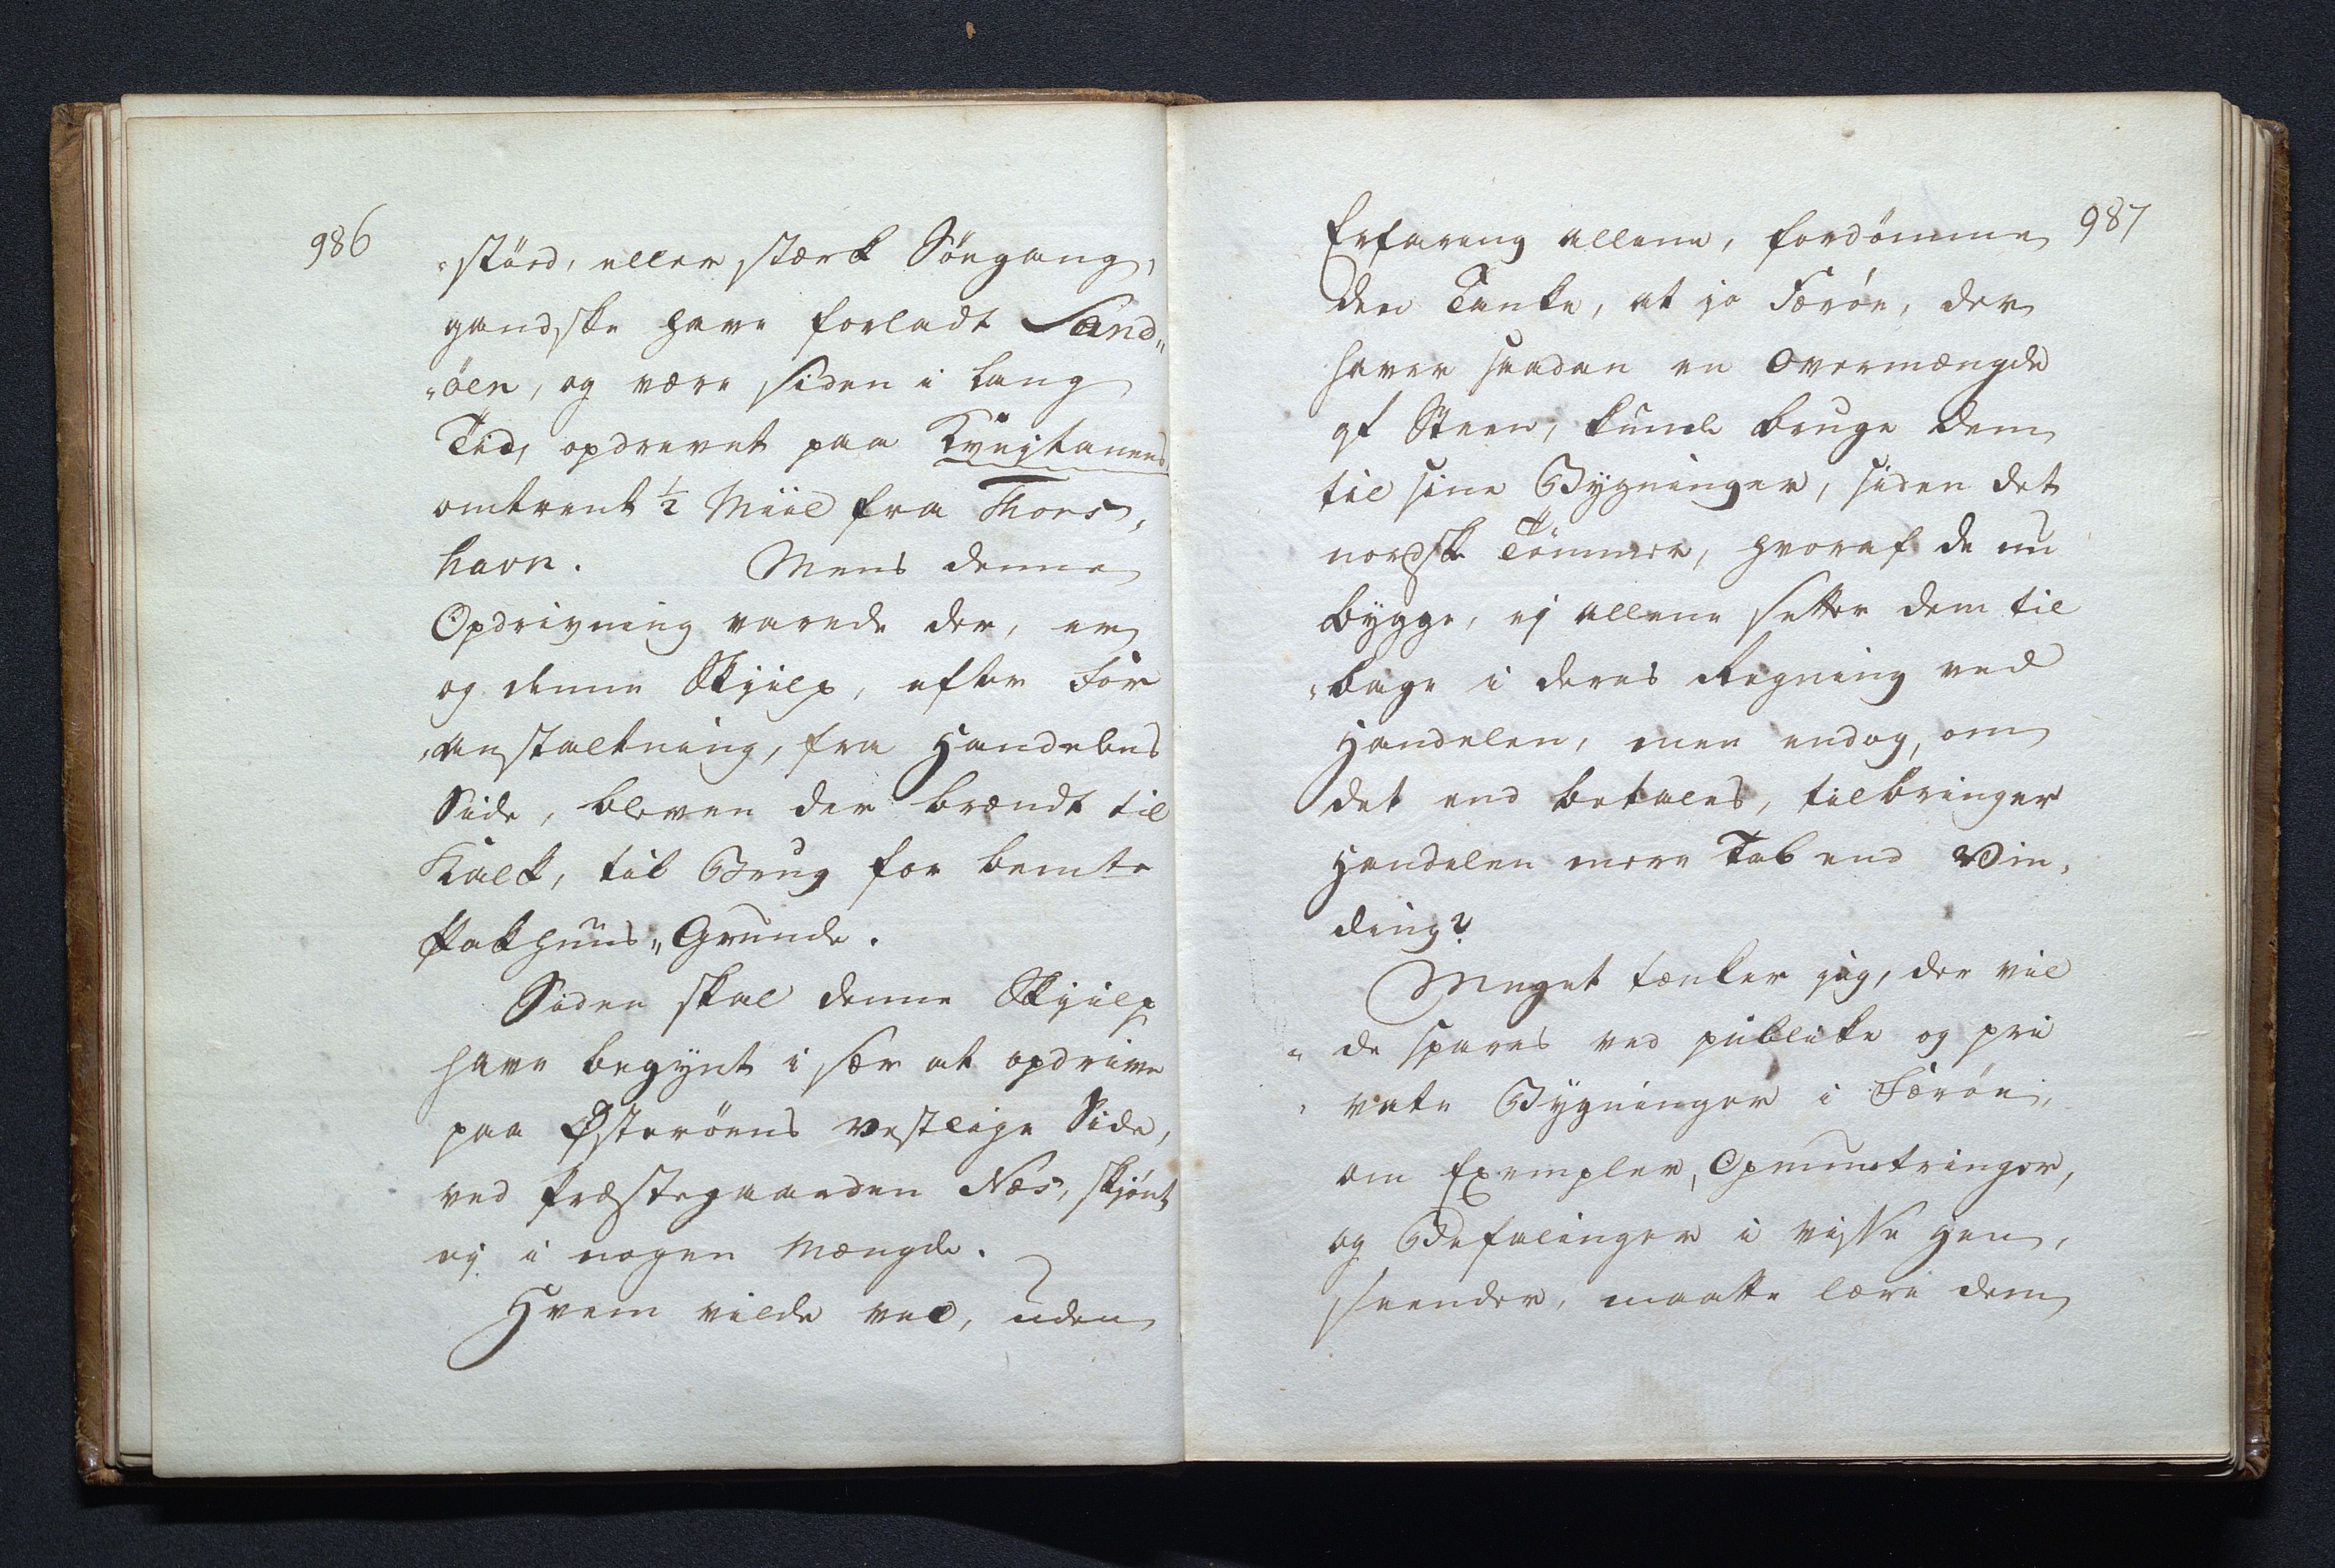 986
"störd, eller stærk Söegang,
gandske have forladt Sand„
"öen, og være siden i lang
Tid, opdrevet paa Kvijtanæs
omtrent ½ Miil fra Thors,
havn. Mens denne
Opdrivning varede der, er
og denne Skjilp, efter For
"anstaltning, fra Handelens
Side, bleven der brændt til
Kalk, til Brug for bemte
Pakhuus„Grunde.
Siden skal denne Skjilp
have begynt i sær at opdrive
paa Østeröens vestlige Side,
ved Præstegaarden Næs, skjönt
ej i nogen Mængde.
Hvem vilde vel, uden
987
Erfaring allene, fordömme
den Tanke, at jo Færöe, der
haver saadan en Overmængde
af Steen, kunde bruge dem
til sine Bygninger, siden det
nordske Tömmer, hvoraf de nu
bygge, ej allene setter dem til
"bage i deres Regning ved
Handelen, men endog, om
det end betales, tilbringer
Handelen mere Tab end Vin,
ding?
Meget tænker jeg, der vil
"de spares ved publike og pri
"vate Bygninger i Færöe,
om Exempler, Opmuntringer,
og Befalinger i visse Hen,
seender, maatte lære dem